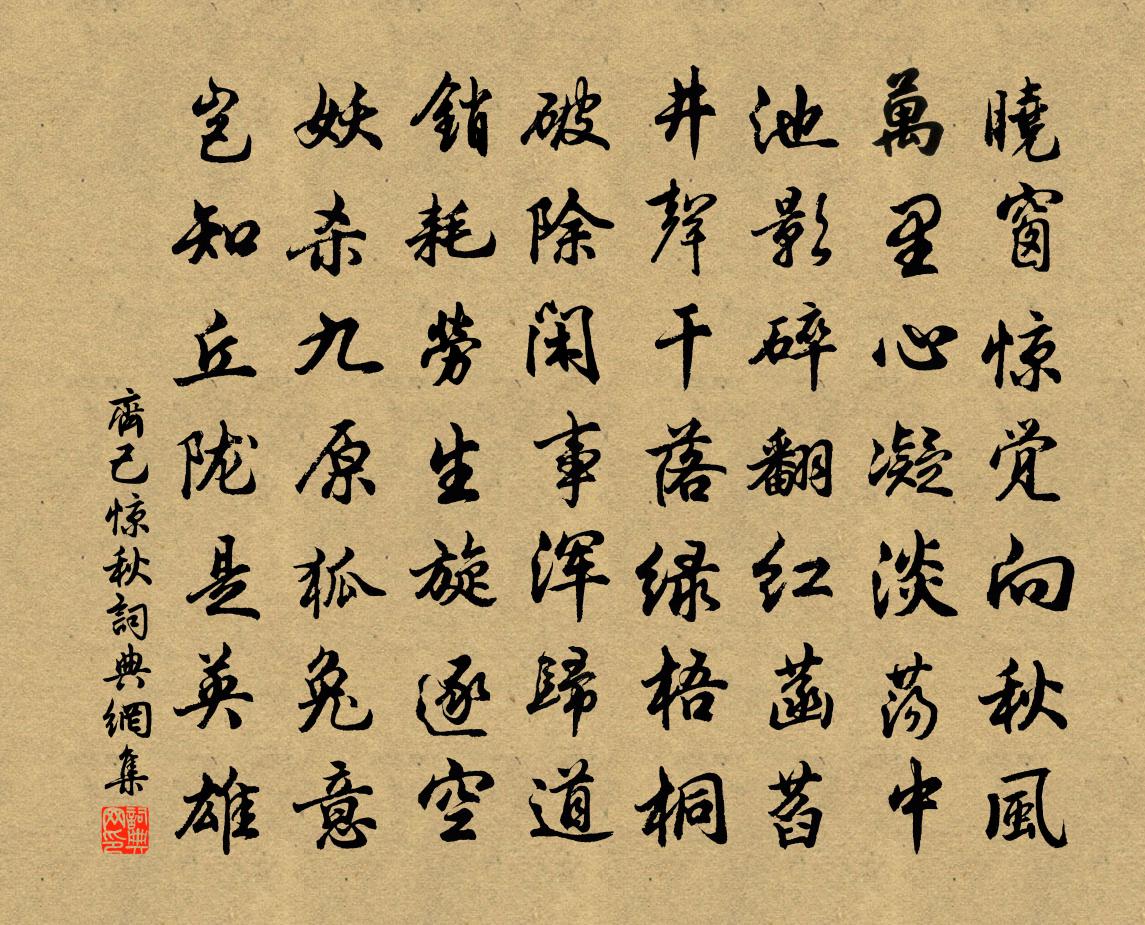 曉窗惊觉向秋風
萬里心凝淡荡中
池影碎翻红菡萏
井聲干落绿梧桐
破除閑事浑歸道
銷耗勞生旋逐空
妖杀九原狐兔意
岂知丘陇是英雄
齊己惊秋詞典網集
詞典網印